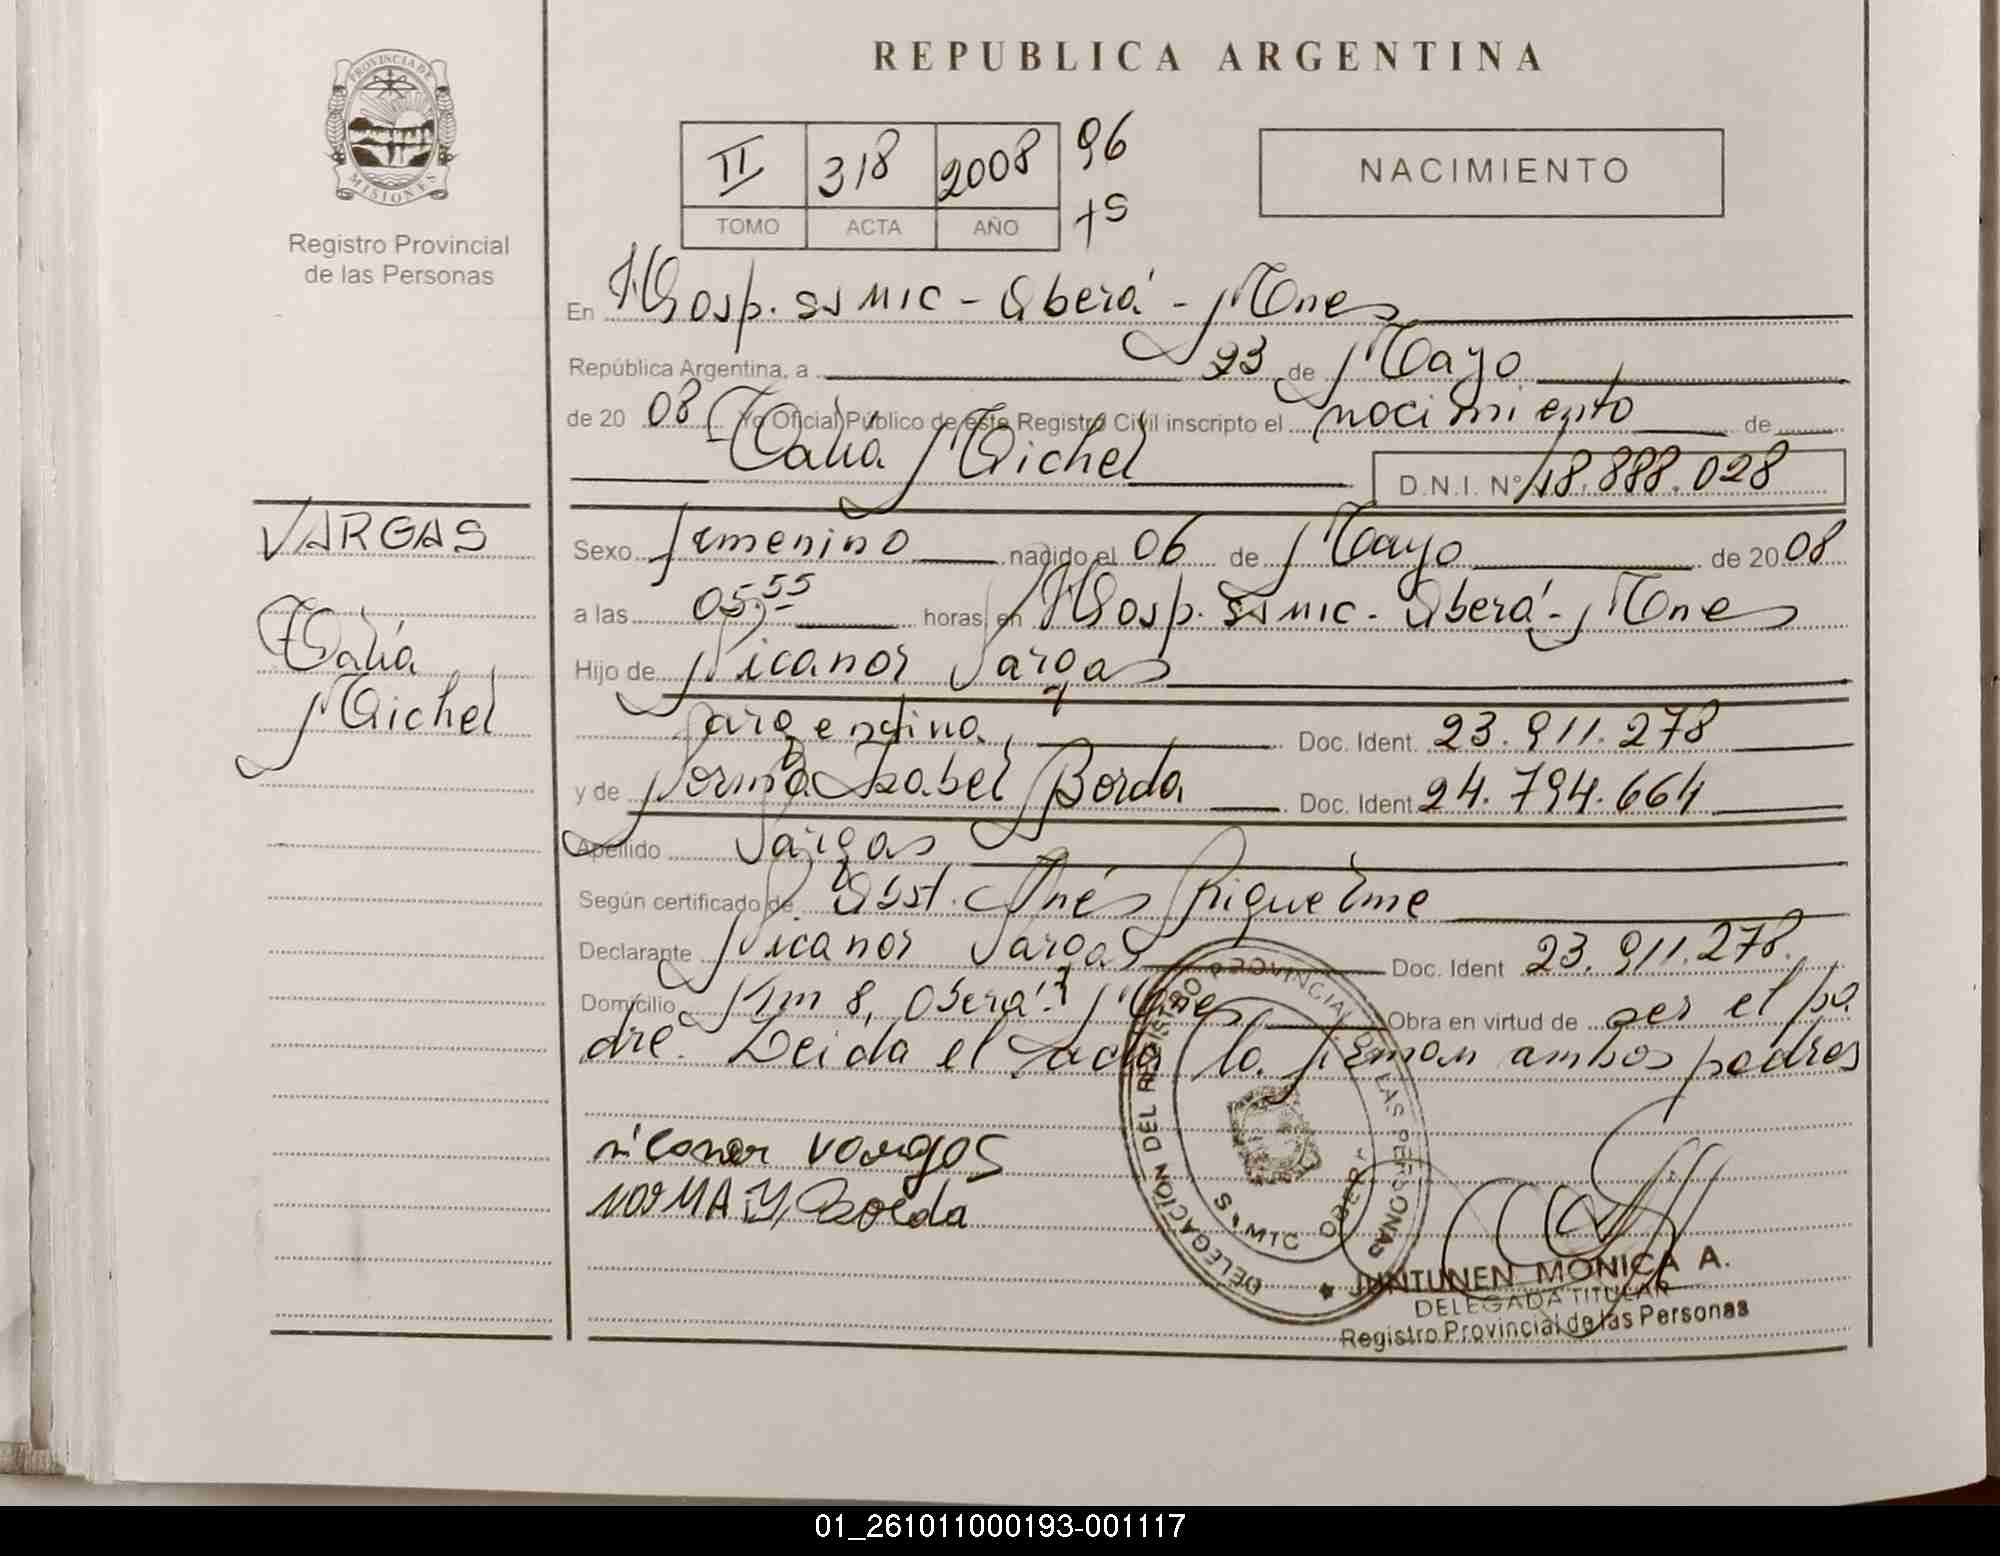 REPUBLICA ARGENTINA
PROVINCIA DE MISIONES
Registro Provincial
de las Personas
II 318 2008 96
TOMO ACTA AÑO
NACIMIENTO
En Hosp. SS MIC - Oberá - Mnes
República Argentina, a 23 de Mayo
de 20 08 Yo Oficial Público de este Registro Civil inscripto el nacimiento de
Talía Michel D.N.I. Nº 48.888.028
VARGAS
Talía
Michel
Sexo femenino nacido el 06 de Mayo de 20 08
a las 05:55 horas, en Hosp. SS MIC - Oberá - Mnes
Hijo de Nicanor Vargas
argentina Doc. Ident. 23.911.278
y de Norma Isabel Borda Doc. Ident. 24.794.664
Apellido Vargas
Según certificado de Obst. Inés Riquelme
Declarante Nicanor Vargas Doc. Ident 23.911.278.
Domicilio Km 8, Oberá - Mnes Obra en virtud de ser el pa
dre. Leida el acta la firman ambos padres
nicanor vargas
NORMA Y, Borda
DELEGACIÓN DEL REGISTRO PROVINCIAL LAS PERSONAS
OBERÁ
JUNTUNEN MONICA A.
DELEGADA TITULAR
Registro Provincial de las Personas
01_261011000193-001117